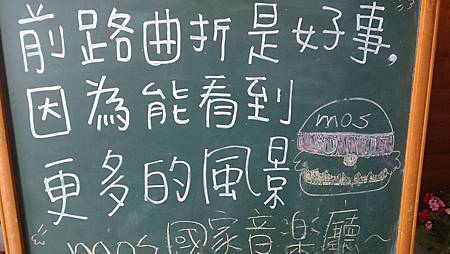 前路曲折是好事,
因為能看到
更多的風景
mos
mos國家音楽廳~